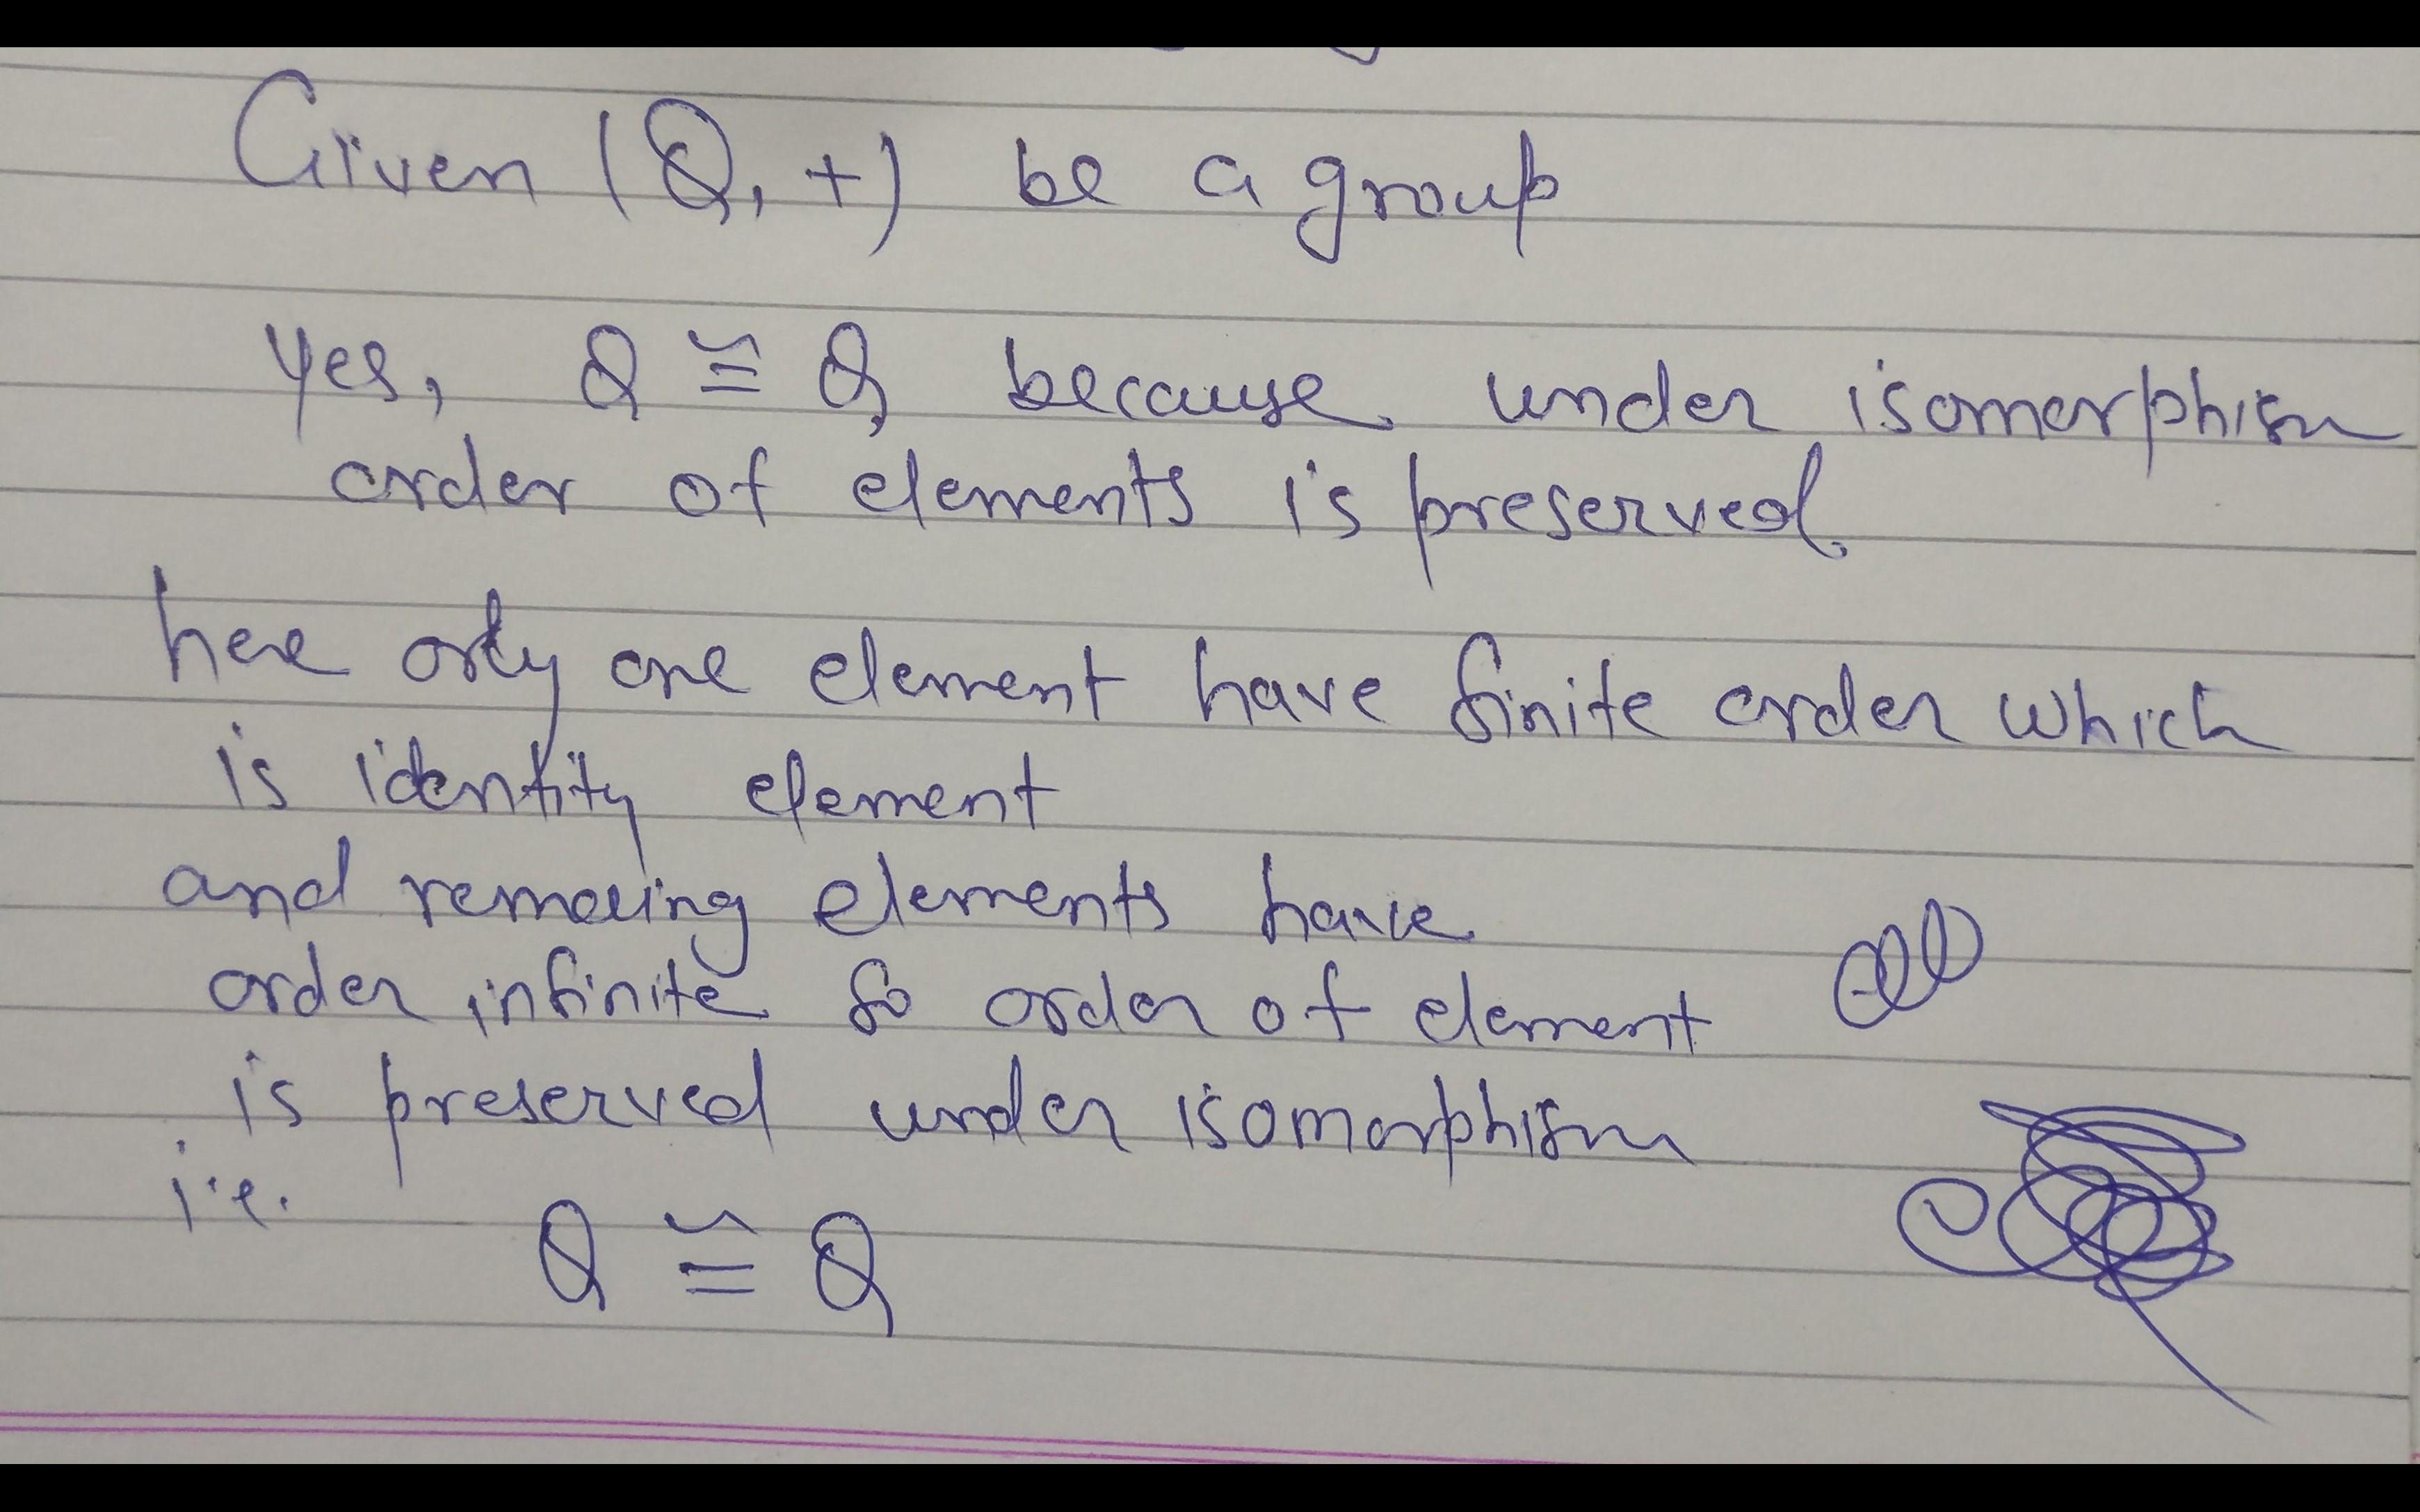 Given (Q, +) be a group
Yes, Q ≅ Q because under isomorphism
order of elements is preserved
here only one element have finite order which
is identity element
and remaing elements have
order infinite so order of element
is preserved under isomorphism
i.e.
Q ≅ Q